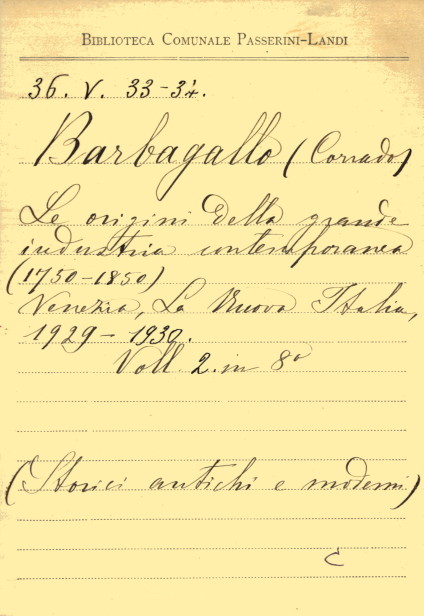 BIBLIOTECA COMUNALE PASSERINI-LANDI
36. V. 33-34.
Barbagallo (Corrado)
Le origini della grande
industria contemporanea
(1750-1850)
Venezia, La Nuova Italia,
1929-1930.
Voll. 2. in 8°
(Storici antichi e moderni)
C